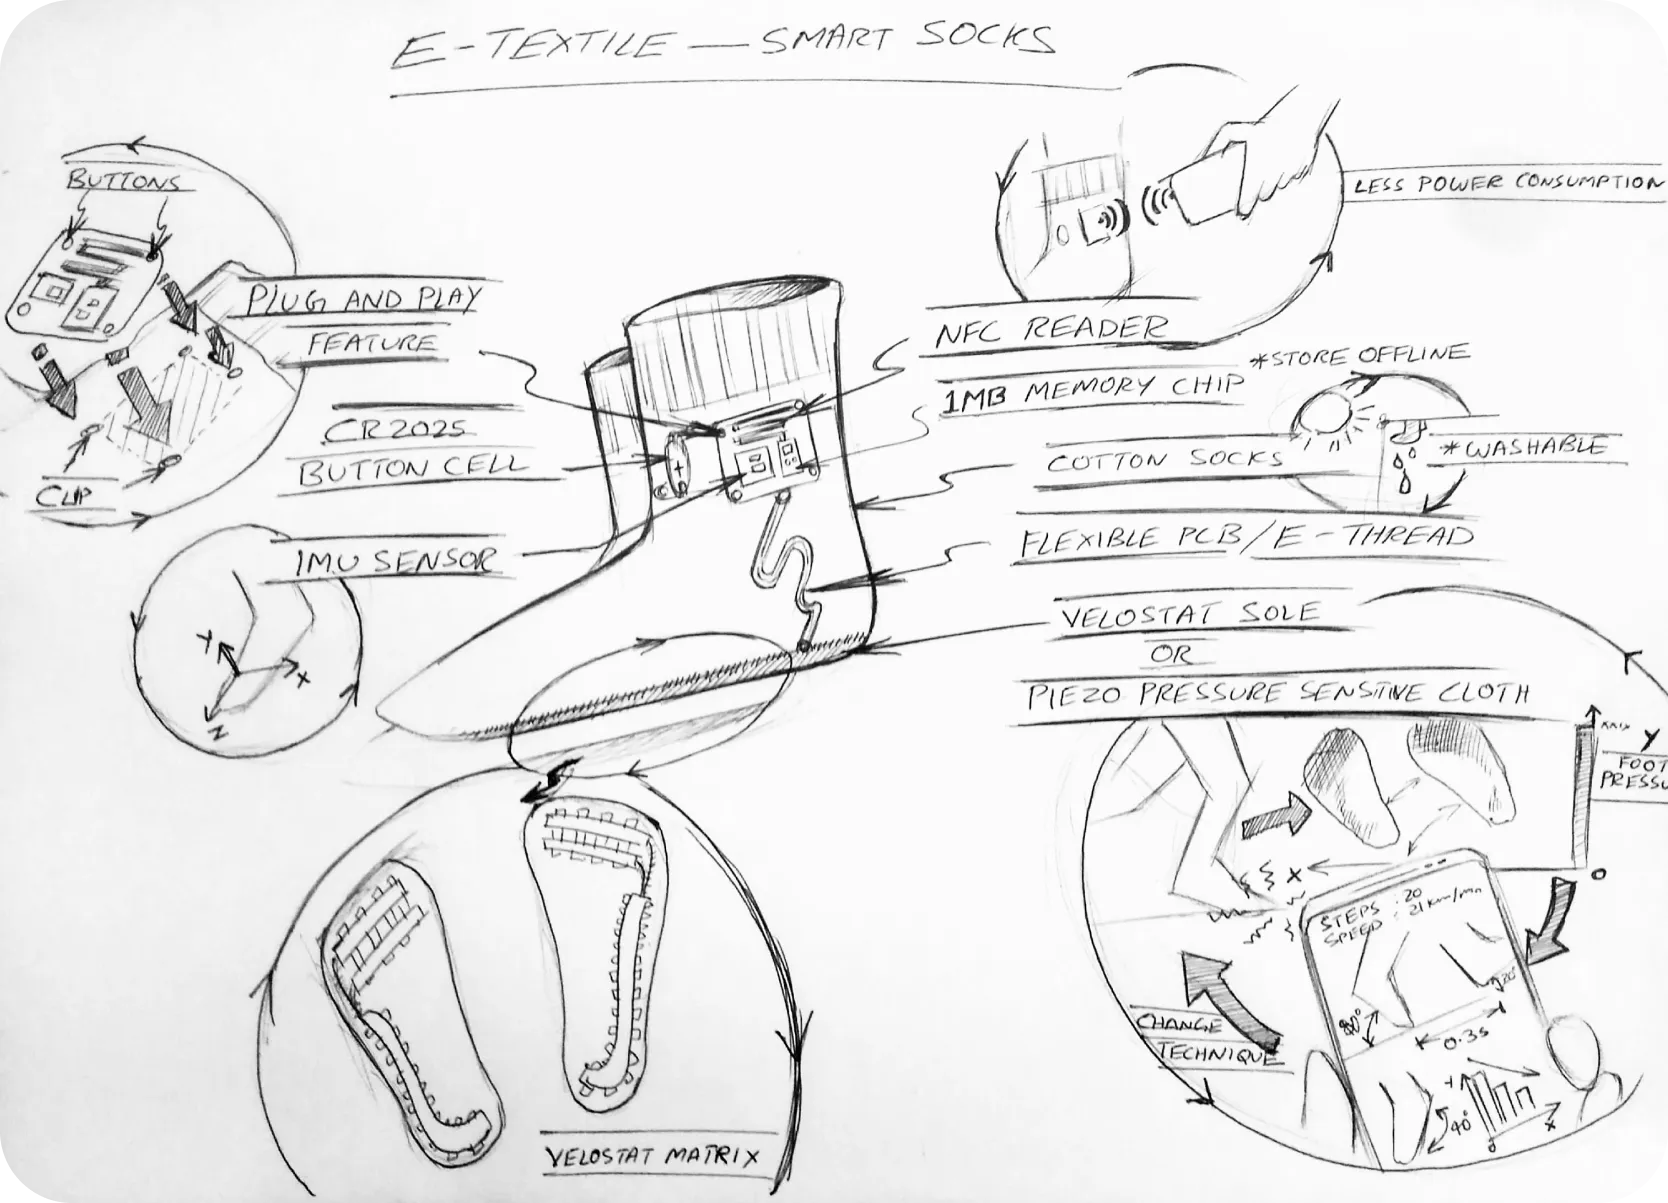 E-TEXTILE — SMART SOCKS
BUTTONS
LESS POWER CONSUMPTION
PLUG AND PLAY
FEATURE
NFC READER
*STORE OFFLINE
1MB MEMORY CHIP
CR2025
BUTTON CELL
COTTON SOCKS
*WASHABLE
CLIP
FLEXIBLE PCB/E-THREAD
IMU SENSOR
VELOSTAT SOLE
OR
PIEZO PRESSURE SENSITIVE CLOTH
Y
X
Z
MAX
Y
FOOT
PRESSU
X
0
STEPS : 20
SPEED : 21km/mn
20°
80°
0.3s
CHANGE
TECHNIQUE
40°
Y
X
0
VELOSTAT MATRIX